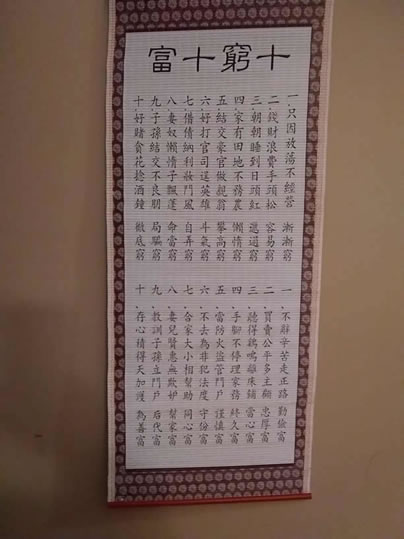 十窮十富
一.只因放蕩不經營 漸漸窮
二.錢財浪費手頭松 容易窮
三.朝朝睡到日頭紅 邋遢窮
四.家有田地不務農 懶惰窮
五.結交豪官做親翁 攀高窮
六.好打官司逞英雄 斗氣窮
七.借債納利妝門風 自弄窮
八.妻奴懶惰子飄蓬 命當窮
九.子孫結交不良朋 局騙窮
十.好賭貪花捻酒鐘 徹底窮
一、不辭辛苦走正路 勤儉富
二、買賣公平多主顧 忠厚富
三、聽得鷄鳴離床鋪 當心富
四、手腳不停理家務 終久富
五、當防火盜管門戶 謹慎富
六、不去為非犯法度 守份富
七、合家大小相幫助 同心富
八、妻兒賢惠無欺妒 幫家富
九、教訓子孫立門戶 后代富
十、存心積得天加護 為善富